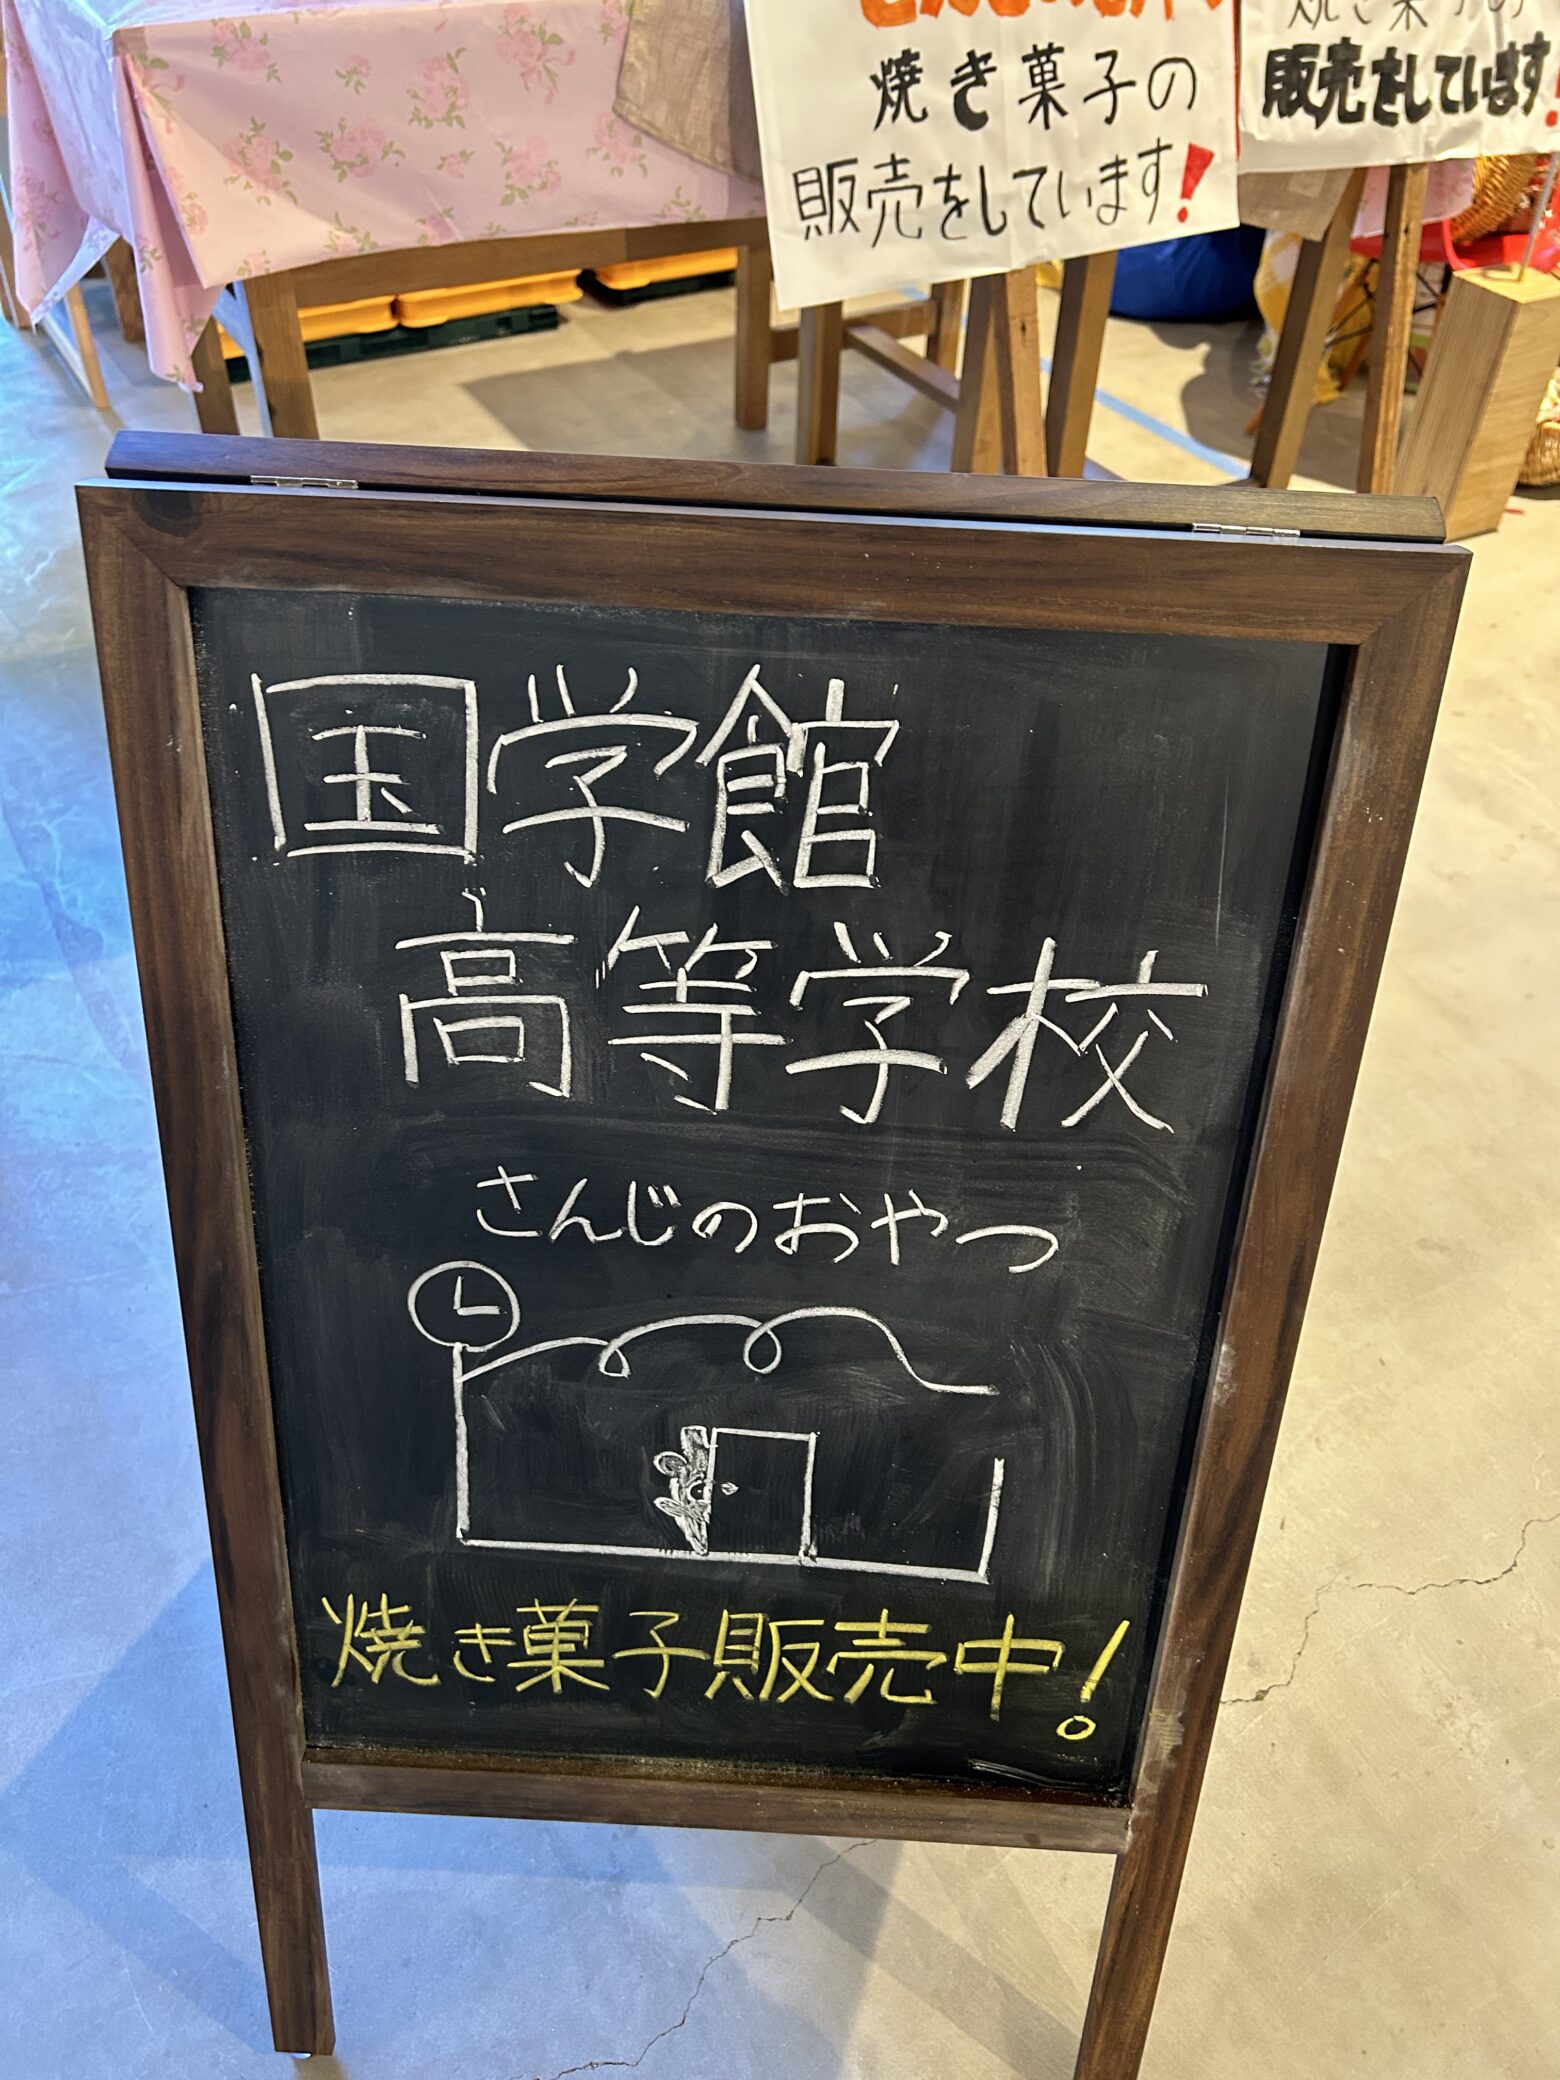 焼き菓子の
販売をしています!
販売をしています!
国学館
高等学校
さんじのおやつ
焼き菓子販売中!